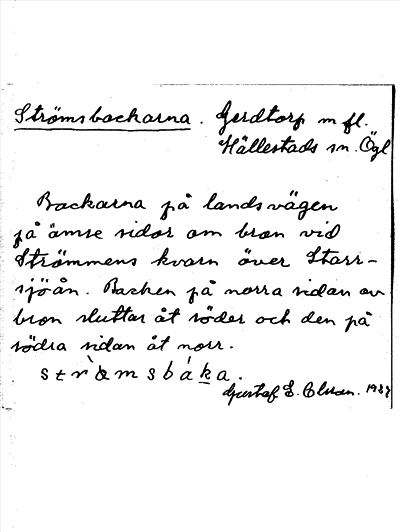 Strömsbackarna. Gerdtorp m fl.
Hällestads sn. Ögl
Backarna på landsvägen
på ömse sidor om bron vid
Strömmens kvarn över Storr-
sjöån. Backen på norra sidan av
bron sluttar åt söder och den på
södra sidan åt norr.
strömsbáka.
Gustaf E. Olsson. 1937